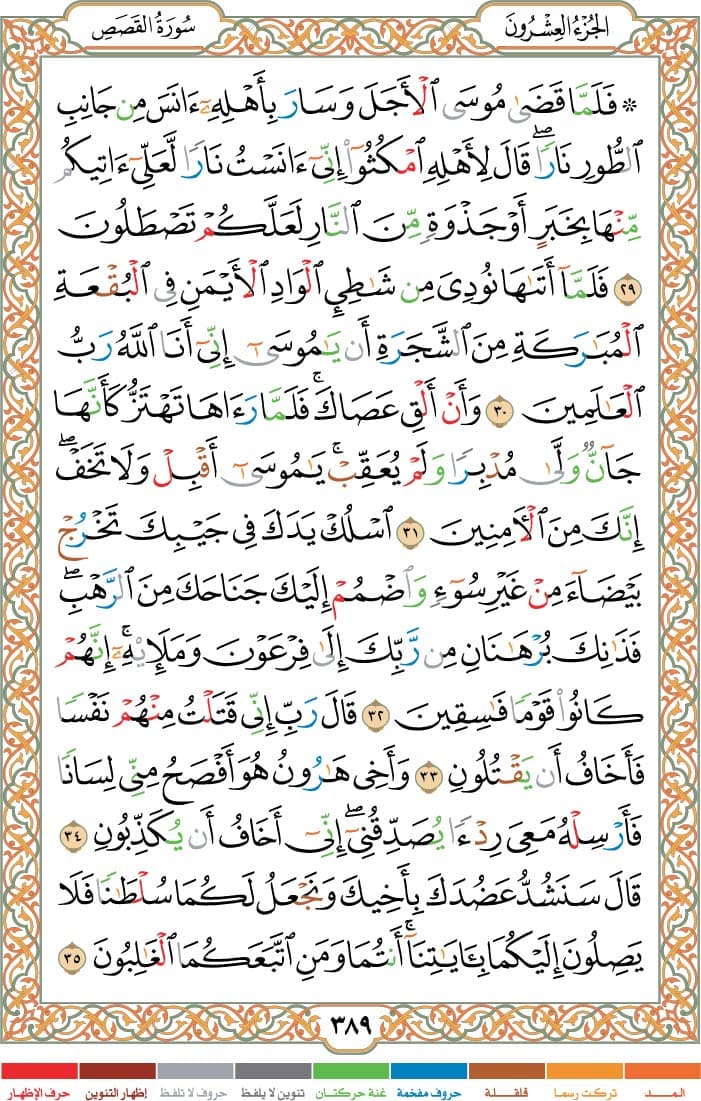 الجُزْءُ العِشْرُونَ
سُورَةُ القَصَصِ
۞ فَلَمَّا قَضَىٰ مُوسَى ٱلْأَجَلَ وَسَارَ بِأَهْلِهِۦٓ ءَانَسَ مِن جَانِبِ
ٱلطُّورِ نَارًاۖ قَالَ لِأَهْلِهِ ٱمْكُثُوٓا۟ إِنِّىٓ ءَانَسْتُ نَارًا لَّعَلِّىٓ ءَاتِيكُم
مِّنْهَا بِخَبَرٍ أَوْ جَذْوَةٍ مِّنَ ٱلنَّارِ لَعَلَّكُمْ تَصْطَلُونَ
٢٩ فَلَمَّآ أَتَىٰهَا نُودِىَ مِن شَٰطِئِ ٱلْوَادِ ٱلْأَيْمَنِ فِى ٱلْبُقْعَةِ
ٱلْمُبَٰرَكَةِ مِنَ ٱلشَّجَرَةِ أَن يَٰمُوسَىٰٓ إِنِّىٓ أَنَا ٱللَّهُ رَبُّ
ٱلْعَٰلَمِينَ ٣٠ وَأَنْ أَلْقِ عَصَاكَۚ فَلَمَّا رَءَاهَا تَهْتَزُّ كَأَنَّهَا
جَآنٌّ وَلَّىٰ مُدْبِرًا وَلَمْ يُعَقِّبْۚ يَٰمُوسَىٰٓ أَقْبِلْ وَلَا تَخَفْۖ
إِنَّكَ مِنَ ٱلْءَامِنِينَ ٣١ ٱسْلُكْ يَدَكَ فِى جَيْبِكَ تَخْرُجْ
بَيْضَآءَ مِنْ غَيْرِ سُوٓءٍ وَٱضْمُمْ إِلَيْكَ جَنَاحَكَ مِنَ ٱلرَّهْبِۖ
فَذَٰنِكَ بُرْهَٰنَانِ مِن رَّبِّكَ إِلَىٰ فِرْعَوْنَ وَمَلَإِي۟هِۦٓۚ إِنَّهُمْ
كَانُوا۟ قَوْمًا فَٰسِقِينَ ٣٢ قَالَ رَبِّ إِنِّى قَتَلْتُ مِنْهُمْ نَفْسًا
فَأَخَافُ أَن يَقْتُلُونِ ٣٣ وَأَخِى هَٰرُونُ هُوَ أَفْصَحُ مِنِّى لِسَانًا
فَأَرْسِلْهُ مَعِىَ رِدْءًا يُصَدِّقُنِىٓۖ إِنِّىٓ أَخَافُ أَن يُكَذِّبُونِ ٣٤
قَالَ سَنَشُدُّ عَضُدَكَ بِأَخِيكَ وَنَجْعَلُ لَكُمَا سُلْطَٰنًا فَلَا
يَصِلُونَ إِلَيْكُمَا بِـَٔايَٰتِنَآۚ أَنتُمَا وَمَنِ ٱتَّبَعَكُمَا ٱلْغَٰلِبُونَ ٣٥
٣٨٩
المــــد تركت رسما قلقـلة حروف مفخمة غنة حركتان تنوين لا يلفظ حروف لا تلفظ إظهار التنوين حرف الإظهار